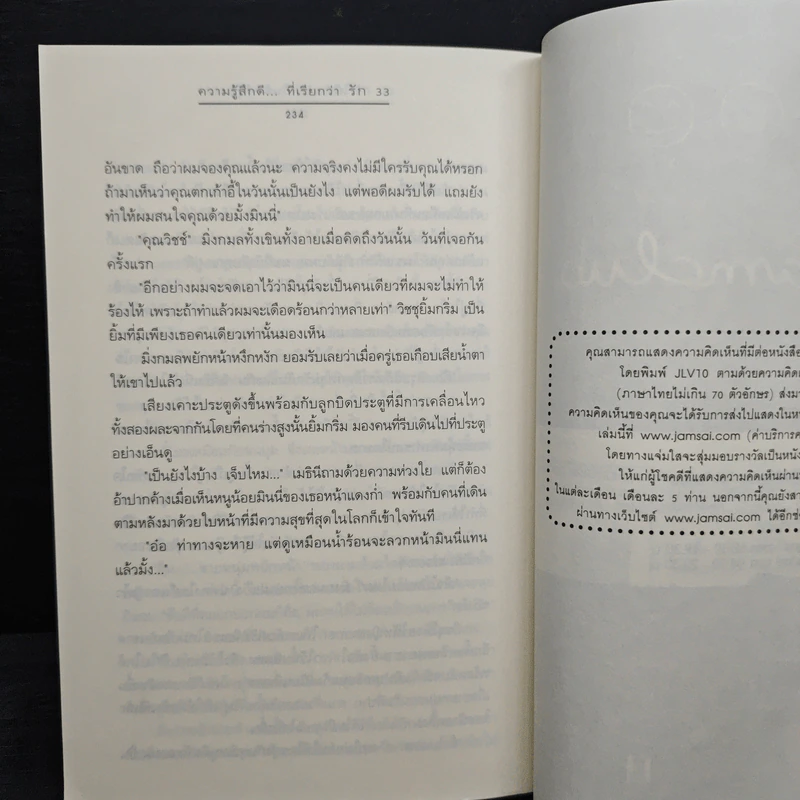 ความรู้สึกดี... ที่เรียกว่า รัก 33
234
อันขาด ถือว่าผมจองคุณแล้วนะ ความจริงคงไม่มีใครรับคุณได้หรอก
ถ้ามาเห็นว่าคุณตกเก้าอี้ในวันนั้นเป็นยังไง แต่พอดีผมรับได้ แถมยัง
ทำให้ผมสนใจคุณด้วยมั้งมินนี่"
"คุณวิชช์" มิ่งกมลทั้งเขินทั้งอายเมื่อคิดถึงวันนั้น วันที่เจอกัน
ครั้งแรก
"อีกอย่างผมจะจดเอาไว้ว่ามินนี่จะเป็นคนเดียวที่ผมจะไม่ทำให้
ร้องไห้ เพราะถ้าทำแล้วผมจะเดือดร้อนกว่าหลายเท่า" วิชชุยิ้มกริ่ม เป็น
ยิ้มที่มีเพียงเธอคนเดียวเท่านั้นมองเห็น
มิ่งกมลพยักหน้าหงึกหงัก ยอมรับเลยว่าเมื่อครู่เธอเกือบเสียน้ำตา
ให้เขาไปแล้ว
เสียงเคาะประตูดังขึ้นพร้อมกับลูกบิดประตูที่มีการเคลื่อนไหว
ทั้งสองผละจากกันโดยที่คนร่างสูงนั้นยิ้มกริ่ม มองคนที่รีบเดินไปที่ประตู
อย่างเอ็นดู
"เป็นยังไงบ้าง เจ็บไหม..." เมธินีถามด้วยความห่วงใย แต่ก็ต้อง
อ้าปากค้างเมื่อเห็นหนูน้อยมินนี่ของเธอหน้าแดงก่ำ พร้อมกับคนที่เดิน
ตามหลังมาด้วยใบหน้าที่มีความสุขที่สุดในโลกก็เข้าใจทันที
"อ๋อ ท่าทางจะหาย แต่ดูเหมือนน้ำร้อนจะลวกหน้ามินนี่แทน
แล้วมั้ง..."
คุณสามารถแสดงความคิดเห็นที่มีต่อหนังสือ
โดยพิมพ์ JLV10 ตามด้วยความคิด
(ภาษาไทยไม่เกิน 70 ตัวอักษร) ส่งม
ความคิดเห็นของคุณจะได้รับการส่งไปแสดงใน
เล่มนี้ที่ www.jamsai.com (ค่าบริการ
โดยทางแจ่มใสจะสุ่มมอบรางวัลเป็นหนัง
ให้แก่ผู้โชคดีที่แสดงความคิดเห็นผ่าน
ในแต่ละเดือน เดือนละ 5 ท่าน นอกจากนี้คุณยังสา
ผ่านทางเว็บไซต์ www.jamsai.com ได้อีก